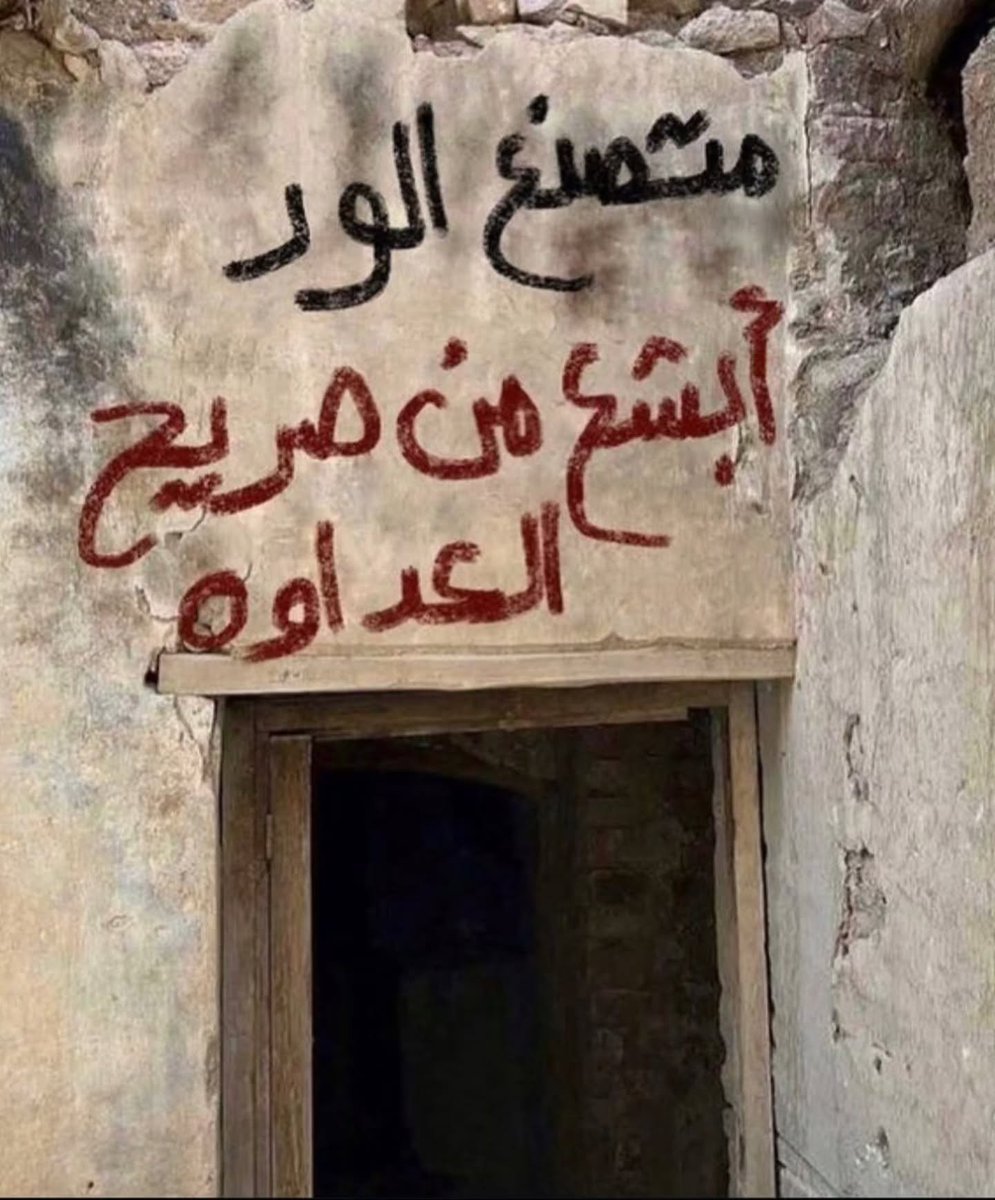 متصنع الود
أبشع من صريح
العداوه